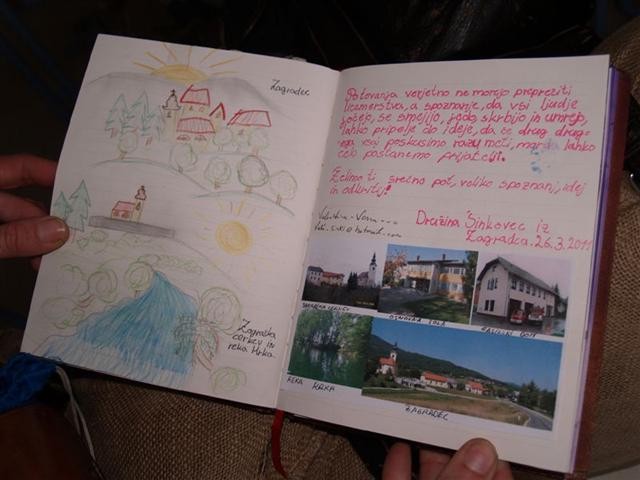 Zagradec
Zagraška
cerkev in
reka Krka.
Potovanja verjetno ne morejo preprečiti
licemerstva, a spoznanje, da vsi ljudje
jočejo, se smejijo, jedo, skrbijo in umrejo,
lahko pripelje do ideje, da če drug drug-
ega vsaj poskusimo razumeti, morda lahko
celo postanemo prijatelji.
Želimo ti srečno pot, veliko spoznanj, idej
in odkritij!
Družina Sinkovec iz
Zagradca. 26.3.2011
OSNOVNA ŠOLA
GASILNI DOM
REKA KRKA
ZAGRADEC